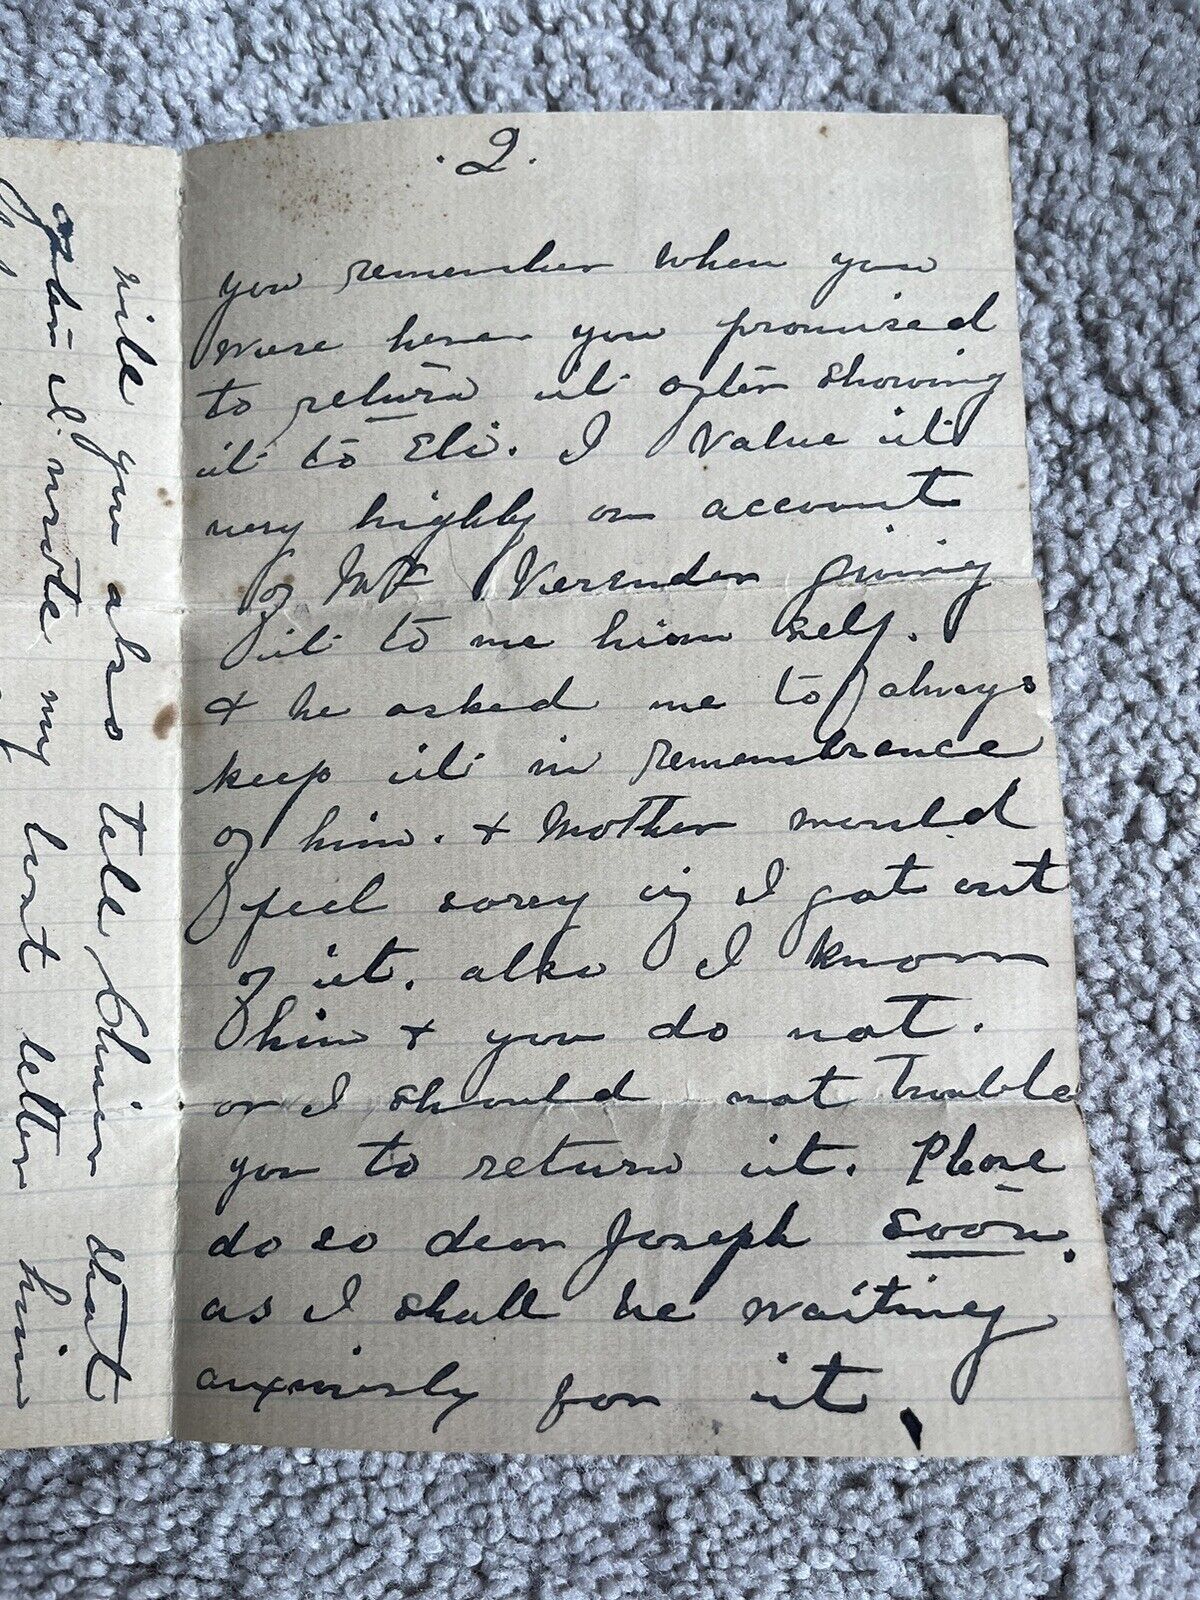 . 2 .
you remember when you
were here you promised
to return it after showing
it to Eli. I value it
very highly on account
of Mr giving
it to me him self.
& he asked me to always
keep it in remembrance
of him. & Mother would
feel sorey if I got out
of it. also I know
him & you do not.
or I should not trouble
you to return it. Please
do so dear Joseph soon.
as I shall be waiting
anxiously for it,
will you also tell that
I wrote my last letter him